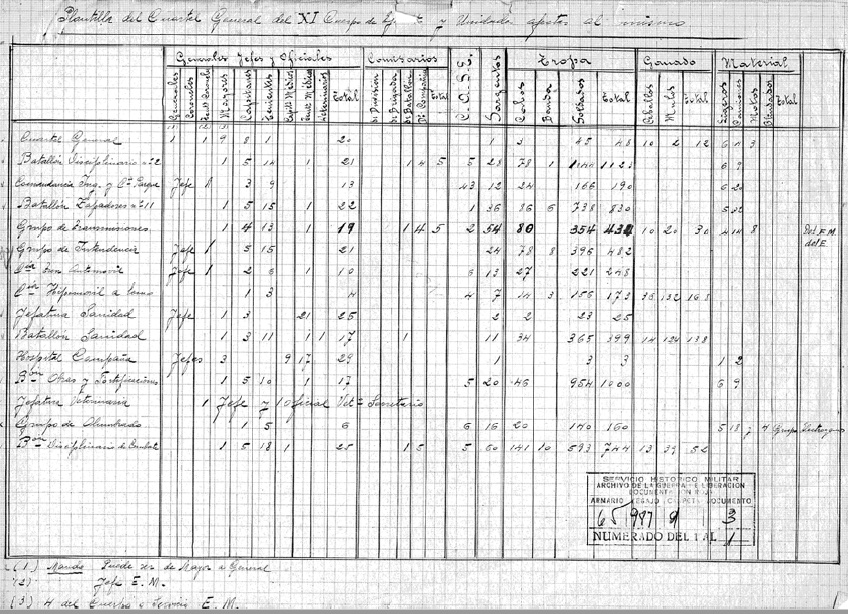 Plantilla del Cuartel General del XI Cuerpo de y Unidades afectas al mismo
Generales Jefes y Oficiales Comisarios C.A.S.E. Tropa Ganado Material
Generales Coroneles Mayores Capitanes Tenientes Total de División de Brigada de Batallón de Compañía Total Sargentos Cabos Banda Soldados Total Caballos Mulos Total Ligeros Camiones Motos Total
Cuartel General 1 1 9 8 1 20 1 3 45 48 10 2 12 6 4 3
Batallón Disciplinario nº 2 1 5 14 1 21 1 4 5 5 28 78 1 1123 6 9
Comandancia Ing. y Cª Parque Jefe 1 3 9 13 43 12 24 166 190 6 20
Batallón Zapadores nº 11 1 5 15 1 22 1 36 86 6 738 830 5
Grupo de Transmisiones 1 4 13 1 19 1 4 5 2 54 80 354 434 10 20 30 4 14 8 F.M. del E.
Grupo de Intendencia Jefe 1 5 15 21 24 78 8 396 482
Automovil Jefe 1 2 6 1 10 6 13 27 221 248
Hipomovil a Lomo 1 3 4 4 7 14 3 156 173 132
Jefatura Sanidad Jefe 1 3 21 25 2 2 23 25
Batallón Sanidad 1 3 11 1 1 17 1 11 34 365 399 14 124 138
Hospital Campaña Jefes 3 9 17 29 1 3 3 1 2
Bón Obras y Fortificaciones 1 5 10 1 17 5 20 46 954 1000 6 9
Jefatura Veterinaria 1 Jefe y 1 Oficial Vetº Secretario
Grupo de Alumbrado 1 5 6 6 16 20 140 160 5 18 7 4 Grupos Electrogenos
Bón Disciplinario de Combate 1 5 18 1 25 1 5 5 60 141 10 593 744 13 39 52
SERVICIO HISTORICO MILITAR
ARCHIVO DE LA GUERRA DE LIBERACION
DOCUMENTACION ROJA
ARMARIO LEGAJO CARPETA DOCUMENTO
65 987 9 3
NUMERADO DEL 1 AL 1
(1) Mando Puede ser de Mayor a General
(2) Jefe E. M.
(3) 4 del Cuerpo y Servicio E. M.